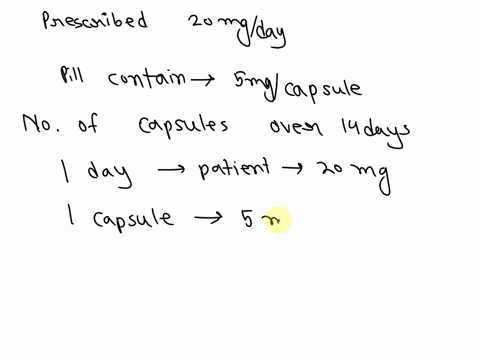 Prescribed 20 mg/day
Pill contain → 5mg/capsule
No. of capsules over 14 days
1 day → patient → 20 mg
1 capsule → 5